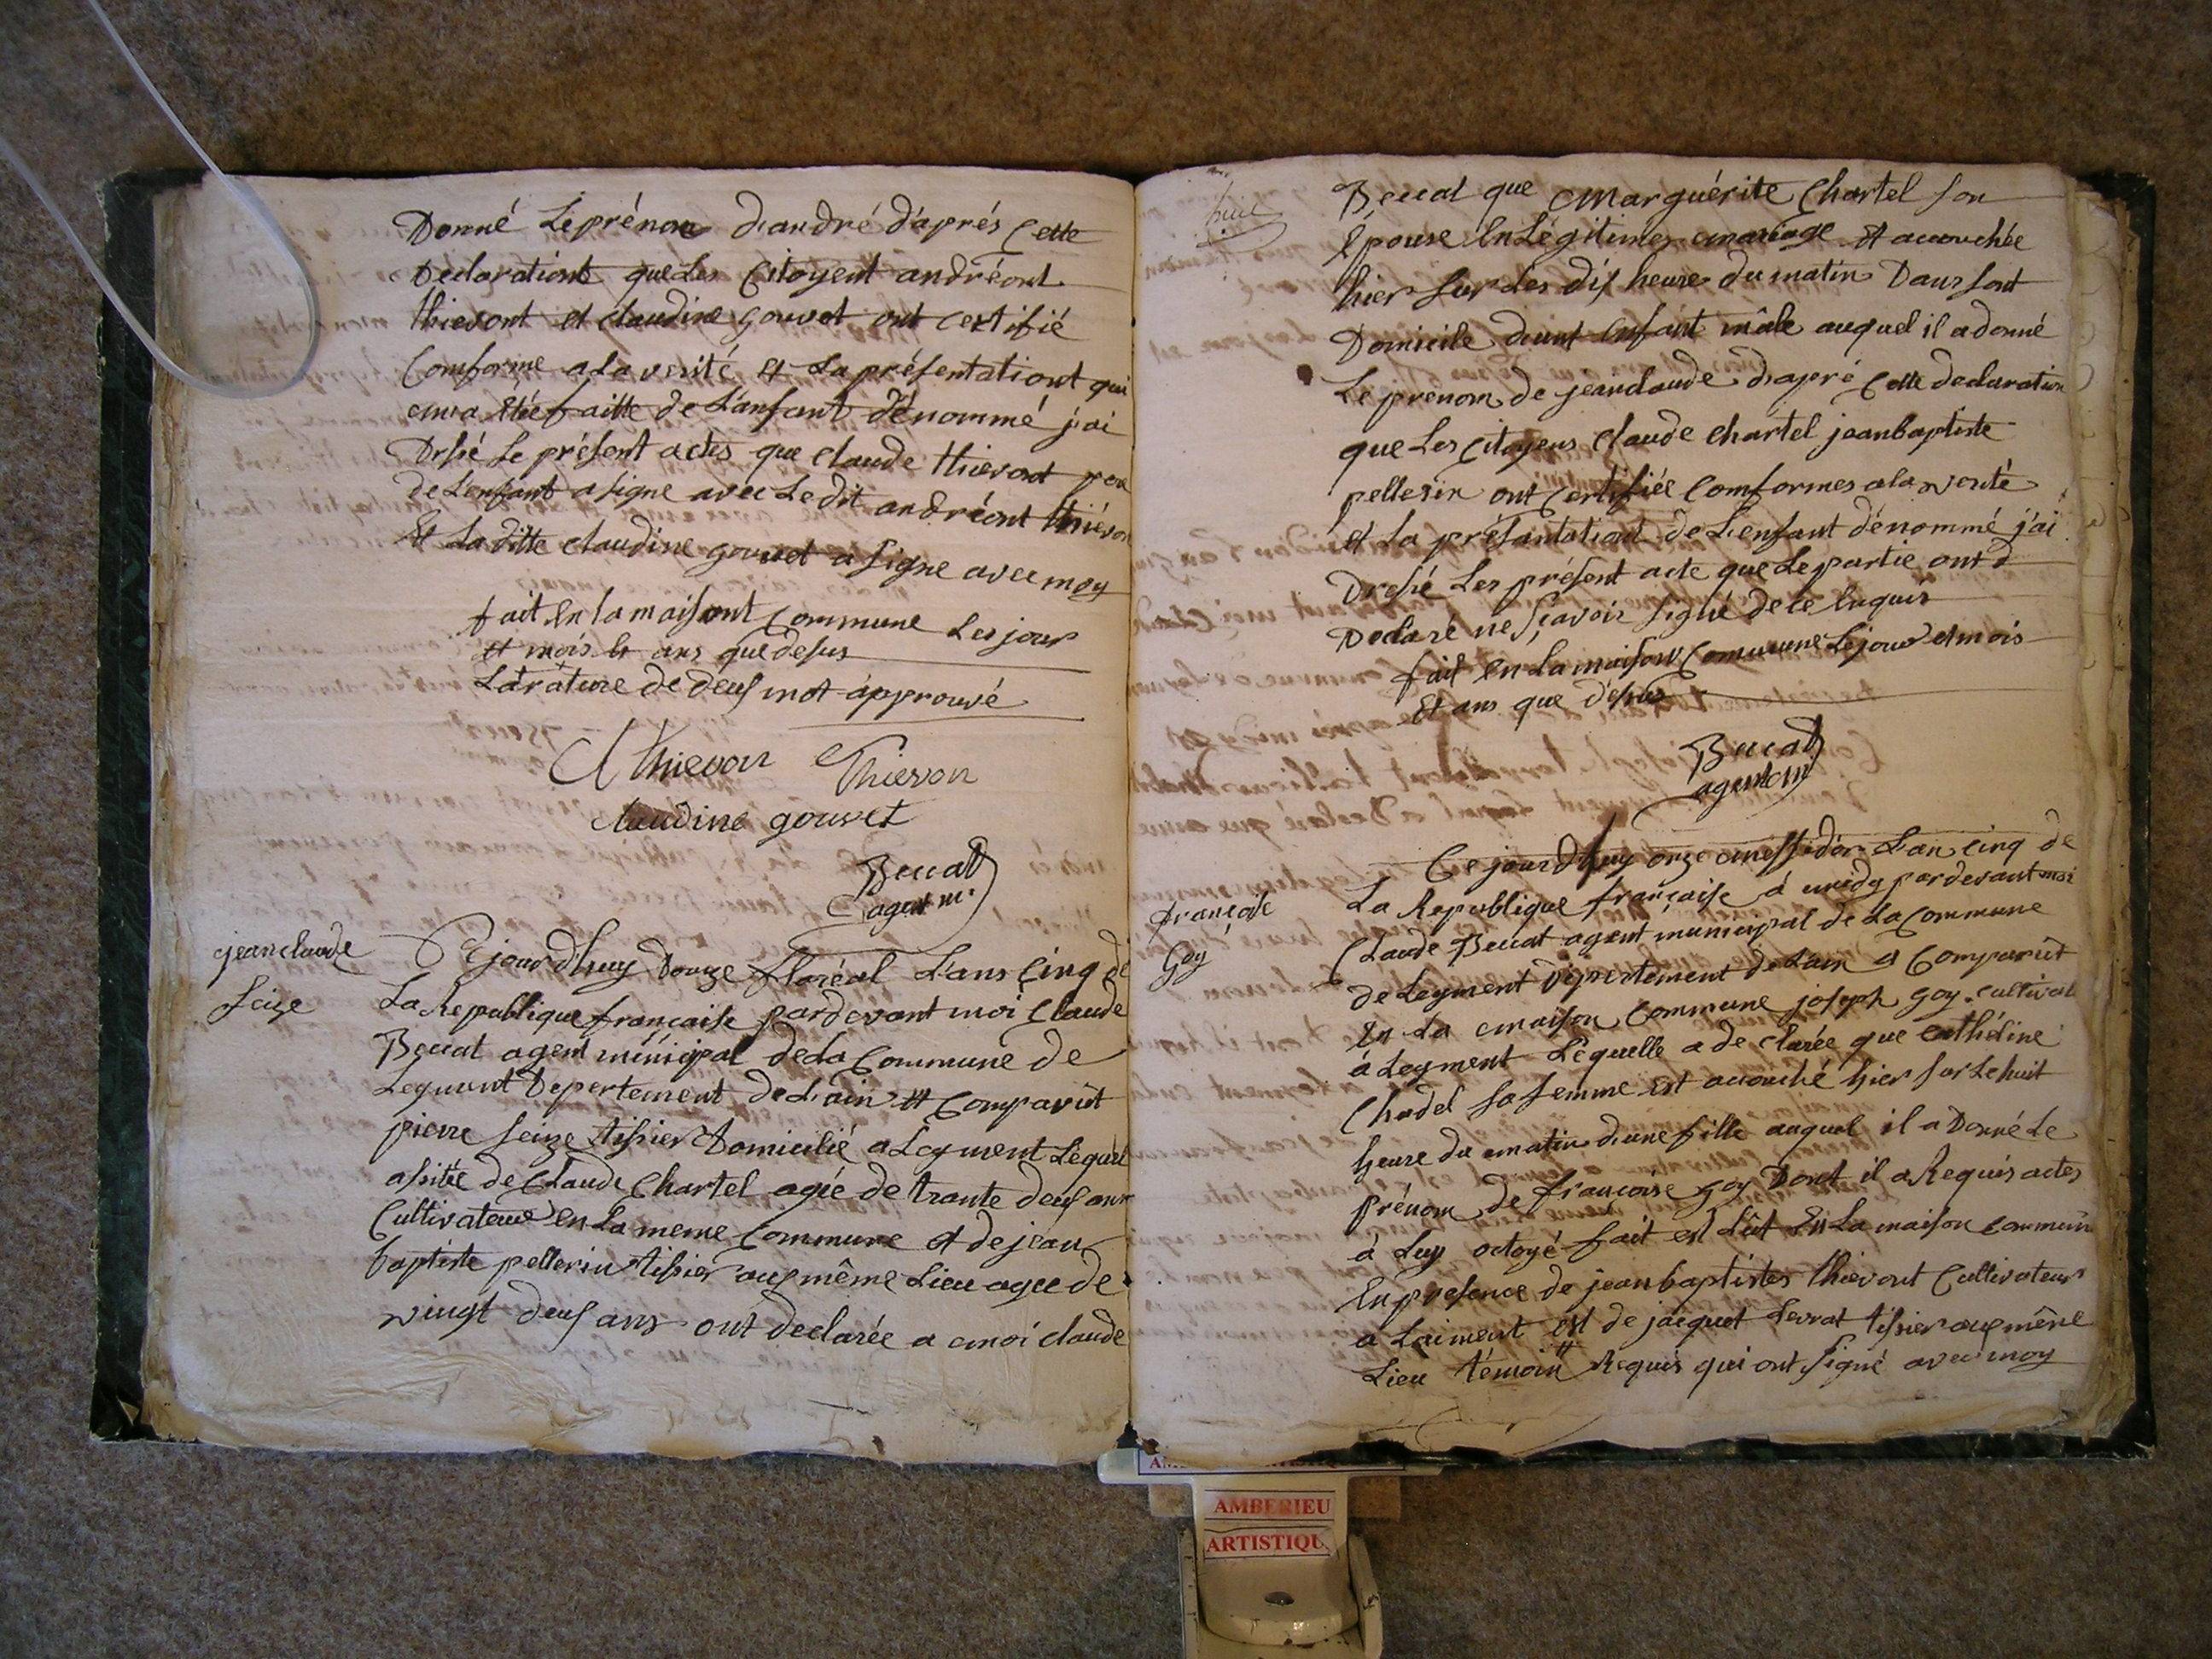 Donné Le prénom d'andré d'aprés Cette
Declarationt que Les Citoyent andréont
thievont et claudine gouvet ont certifié
Comforme a la verité et La présentationt qui
ma étée faitte de L'anfant dénommé j'ai
Drésé Le présent actes que claude thievont pere
de L'enfant a signe avec Le dit andréont thiévon
Et La ditte claudine gouvet a signe avec moy
fait en La maisont Commune Les jour
et mois et ans que desus
La rature de deux mot approuvé
Thievon Thievon
claudine gouvet
Beccat
agent m.
jean claude
Seize
Ce jourd'huy Douze floréal L'ans Cinq de
La Republique française pardevant moi Claude
Beccat agent municipal de La Commune de
Leyment Departement de L'ain et Comparut
pierre Seize tissier Domicilié a Leyment Lequel
assitée de Claude Chartel agée de trante deux ans
Cultivateur en La meme Commune et de jean
baptiste pellerin tissier aux même Lieu agee de
vingt deux ans ont declarée a moi claude
Beccat que Marguérite Chartel son
épouse en Légitimes mariage Et accouchée
hier sur Les dix heure du matin Dans sont
Domicile d'unt enfant mâle auquel il a donné
Le prenom de jean claude d'apré Cette declaration
que Les Citoyens claude chartel jean baptiste
pellerin ont Certifiée Comformes a la verité
et La présantationt de L'enfant dénommé j'ai
Dresé Les présent acte que Le partie ont d
Declaré ne sçavoir signé de ce enquis
fait en La maison Commune Le jour et mois
Et ans que desus
Beccat
agent m
françoise
Goy
Ce jourdhuy onze messidor L'an cinq de
La Republique française à midy pardevant moi
Claude Beccat agent municipal de La Commune
de Leyment Departement de L'ain a Comparut
En La maison Commune joseph goy Cultivat
à Leyment Lequelle a declarée que cathéline
Chadel sa femme est acouché hier sur Le huit
heure du matin d'une fille auquel il a Donné Le
prénom de françoise goy Dont il a Requis actes
à Luy octoyé fait est Lut En La maison commun
En presence de jean baptistes thievont Cultivateur
a Laiment est de jacquet Levrat tissier aux même
Lieu témoin Requis qui ont signé avec moy
AMBERIEU
ARTISTIQU